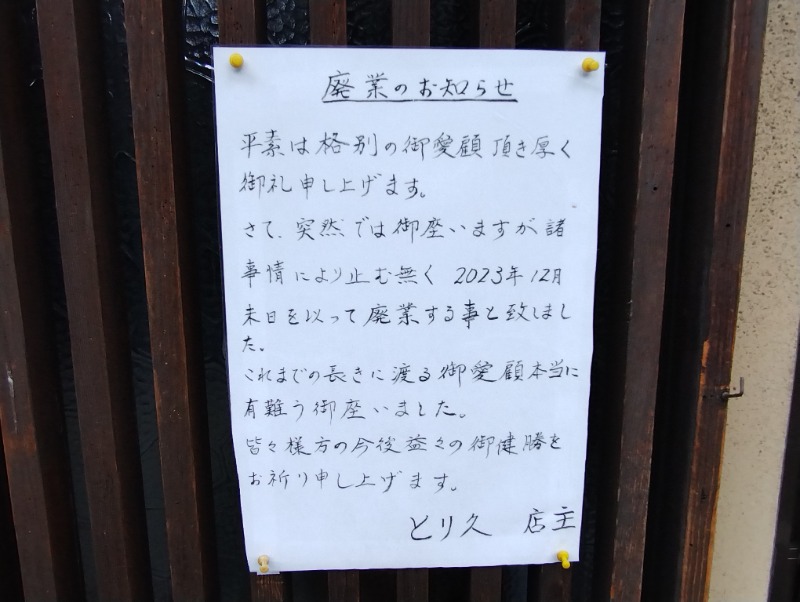 廃業のお知らせ
平素は格別の御愛顧頂き厚く
御礼申し上げます。
さて、突然では御座いますが諸
事情により止む無く 2023年12月
末日を以って廃業する事と致しまし
た。
これまでの長きに渡る御愛顧本当に
有難う御座いました。
皆々様方の今後益々の御健勝を
お祈り申し上げます。
とり久 店主